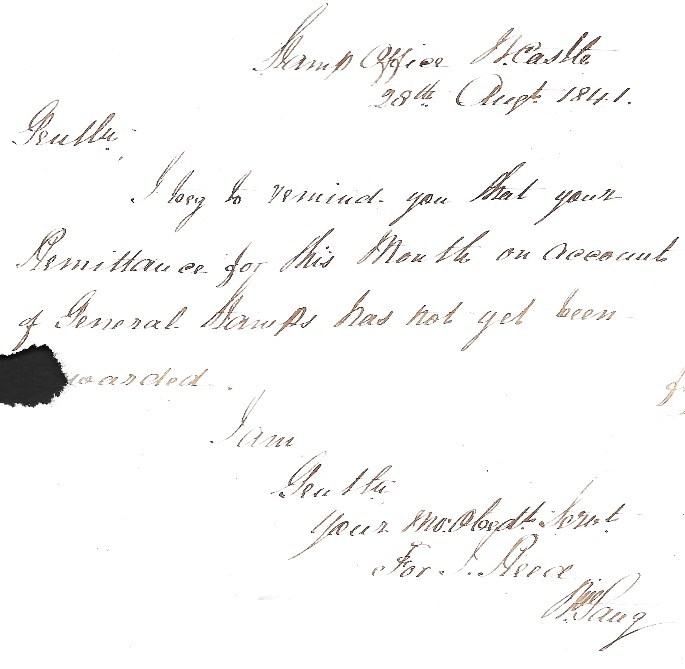 Stamp Office N. Castle
28th Augt. 1841.
Gentln.
I beg to remind you that your
Remittance for this Month on account
of General Stamps has not yet been
warded. f
I am
Gentln
Your mo. Obedt. Servt.
For J.
Wm